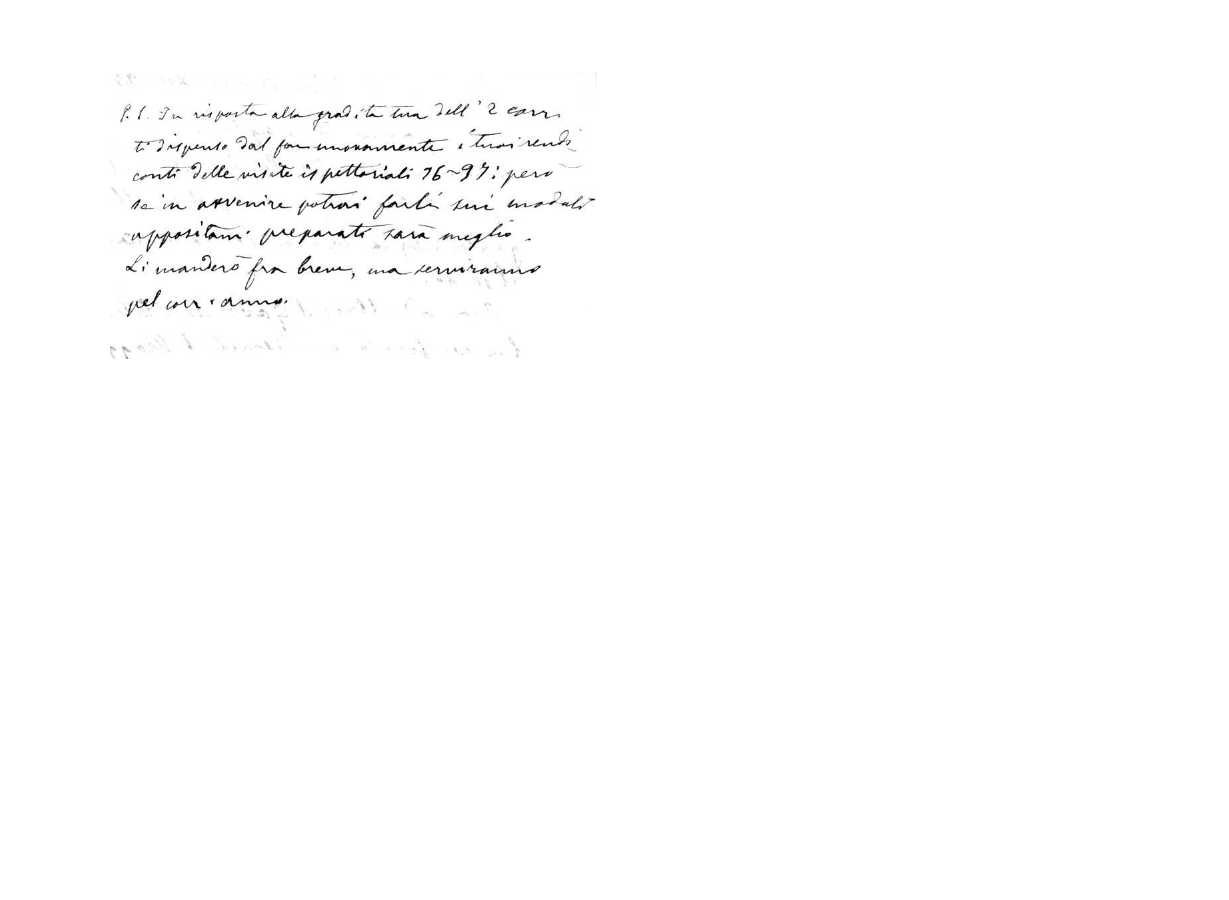 P.S. In risposta alla gradita tua dell' 2 corr.
ti dispenso dal far nuovamente i tuoi rendi
conti delle visite ispettoriali 96-97: però
se in avvenire potrai farli sui moduli
appositam. preparati sarà meglio.
Li manderò fra breve, ma serviranno
pel corr. anno.